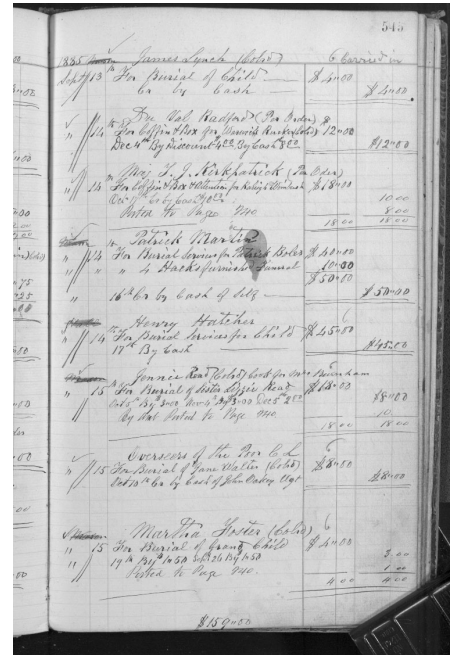 545
1885 James Lynch (Cold) 6 Carried in
Sept 13th For Burial of Child $4"00
Cr by Cash $4"00
Dr Val Radford (Per Order) $
" 14th For Coffin & Box for (Cold) 12"00
Dec 4th By Discount 4.00 By Cash 8.00 $12"00
Maj T. J. Kirkpatrick (Per Order)
" 14th For Coffin & Box & Attention for $18"00
Cr by Cash 10.00 10 00
Posted to Page 940 8 00
18 00 18 00
Patrick Martin
" 14th For Burial Services for Patrick $40"00
" " 4 Hacks furnished Funeral 10"00
$50"00
" 16th Cr by Cash of Self $50"00
Henry Hatcher
" 14th For Burial Services for Child $45"00
17th By Cash $45"00
Jennie Read (Cold) Cook for Mrs
" 15th For Burial of Sister Lizzie Read $18"00
Oct 5th By 3"00 Nov 4th By 3"00 Dec 5th 2.00 $8"00
By Posted to Page 940 10
18 00 18 00
Overseers of the Poor C. L. 6
" 15 For Burial of Jane Walter (Cold) $8"00
Oct 10th Cr by Cash of John Oakey Agt $8"00
Martha Foster (Cold) 6
" 15 For Burial of Grand Child $4"00
" 19th By 1"50 Sept 26 By 1"50 3 00
Posted to Page 940. 1 00
4 00 4 00
$159"00